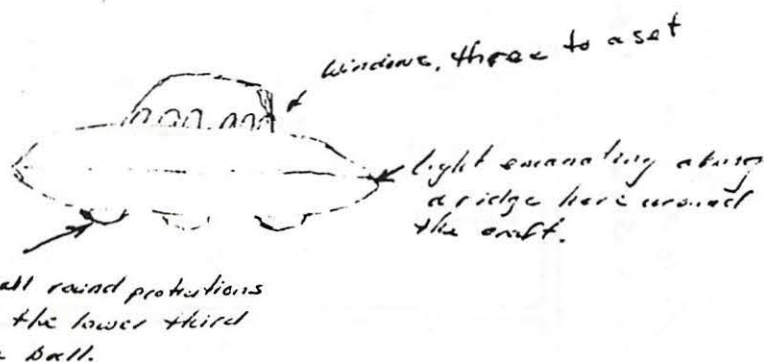 windows, three to a set
light emanating along
a ridge here around
the craft.
all round protrutions
the lower third
ball.